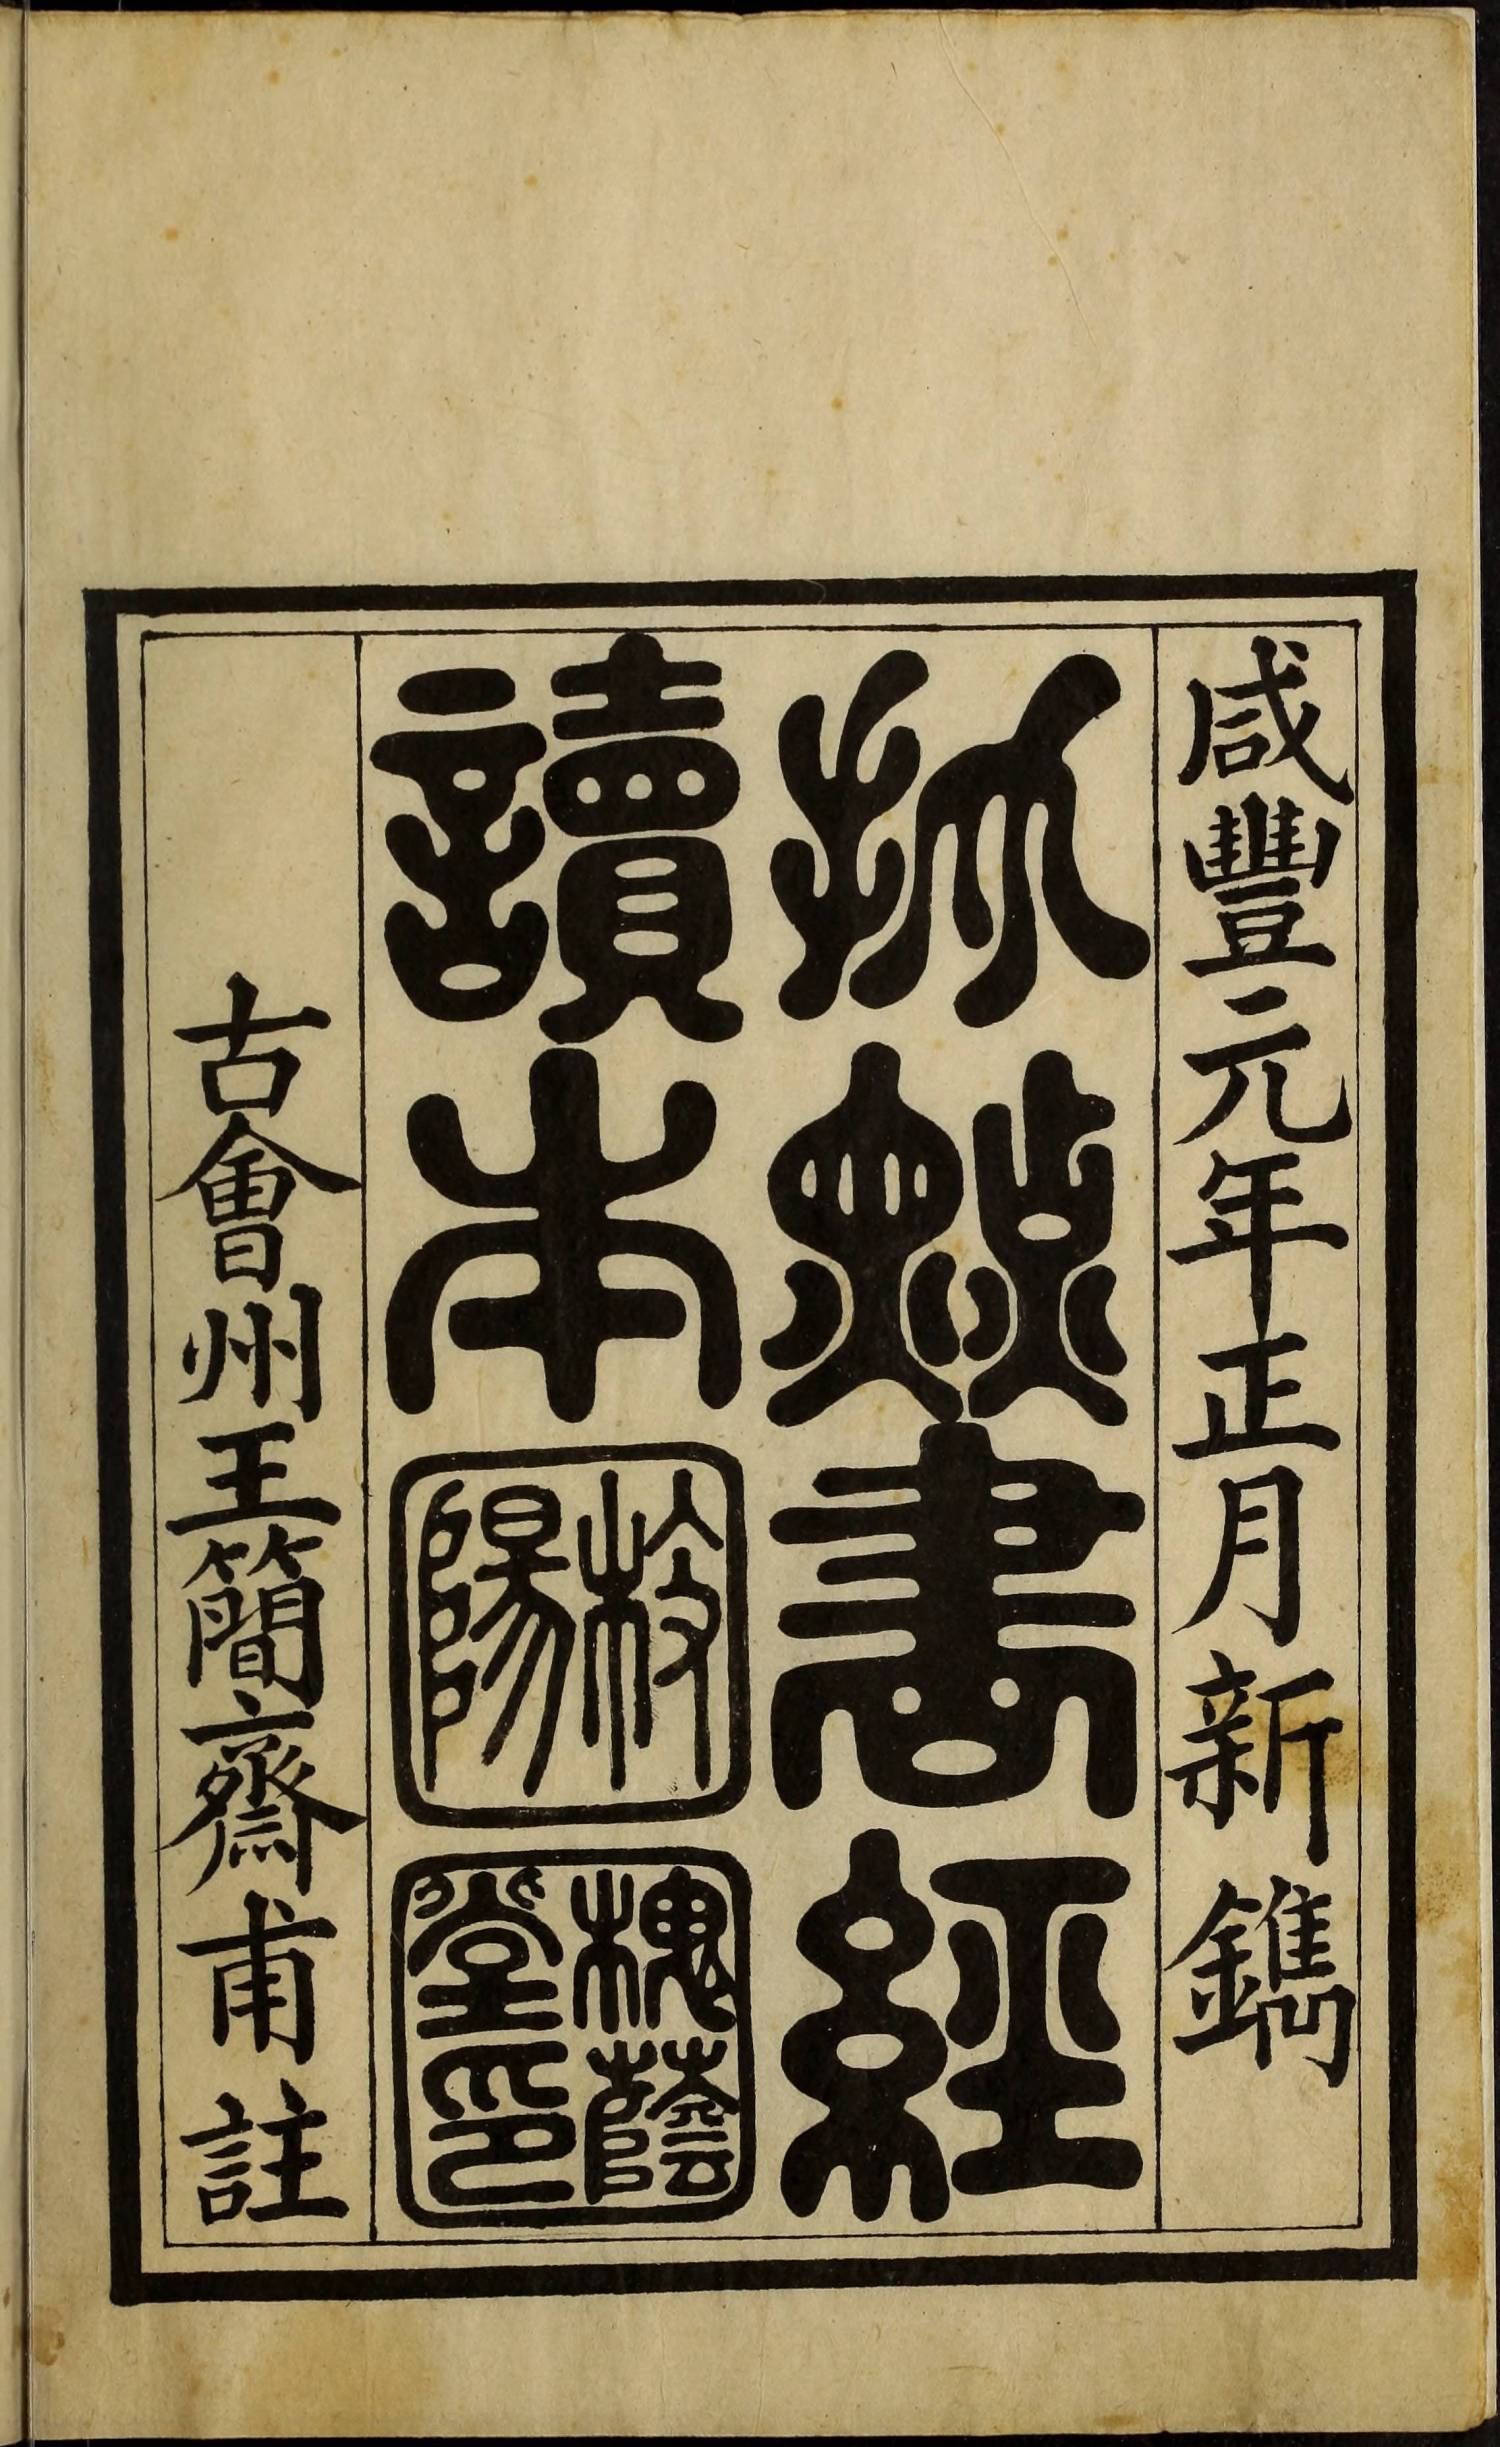 咸豐元年正月新鐫
點書經
讀本
陽
槐蔭堂印
古會州王簡齋甫註